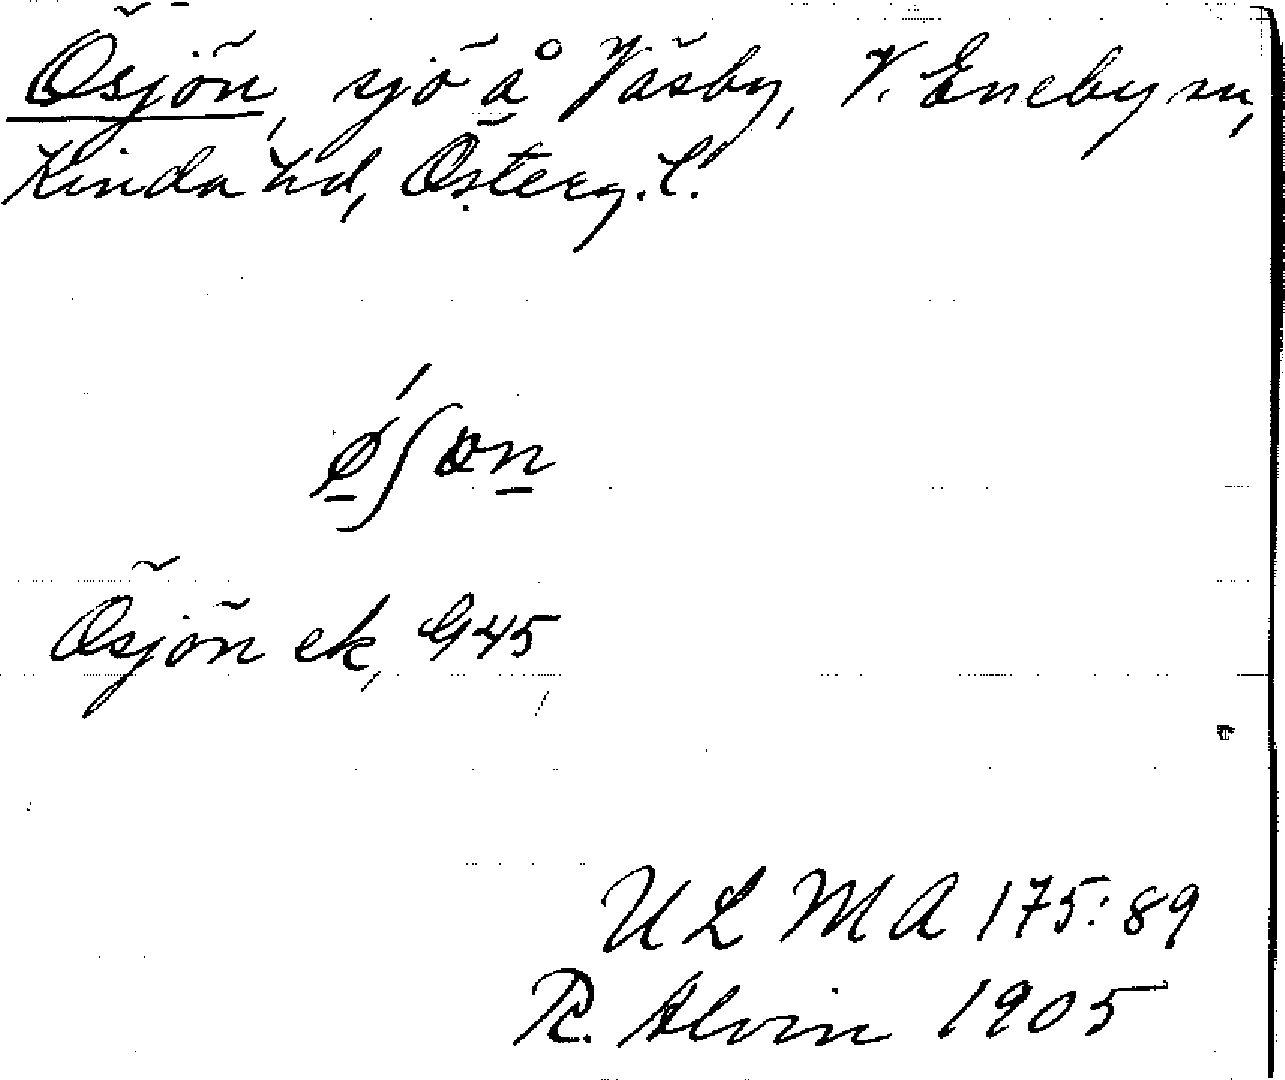 Ösjön, sjö å Väsby, V. Eneby sn,
Kinda hd, Österg. l.
Ösjön ek, G45
ULMA 175:89
R. Alvin 1905